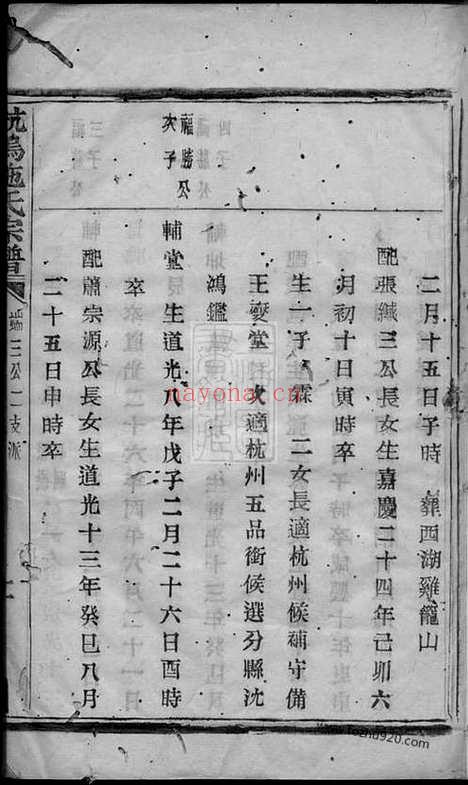 二月十五日子時 葬西湖雞籠山
配張緘三公長女生嘉慶二十四年己卯六
月初十日寅時卒
生一子 霖 二女長適杭州候補守備
王燮堂 次適杭州五品銜候選分縣沈
鴻鑑
福勝公
次子
輔堂 生道光八年戊子二月二十六日酉時
卒
配蕭宗源公長女生道光十三年癸巳八月
二十五日申時卒
施氏宗譜
三公一支派
nayona.cn
www.fozhu920.com